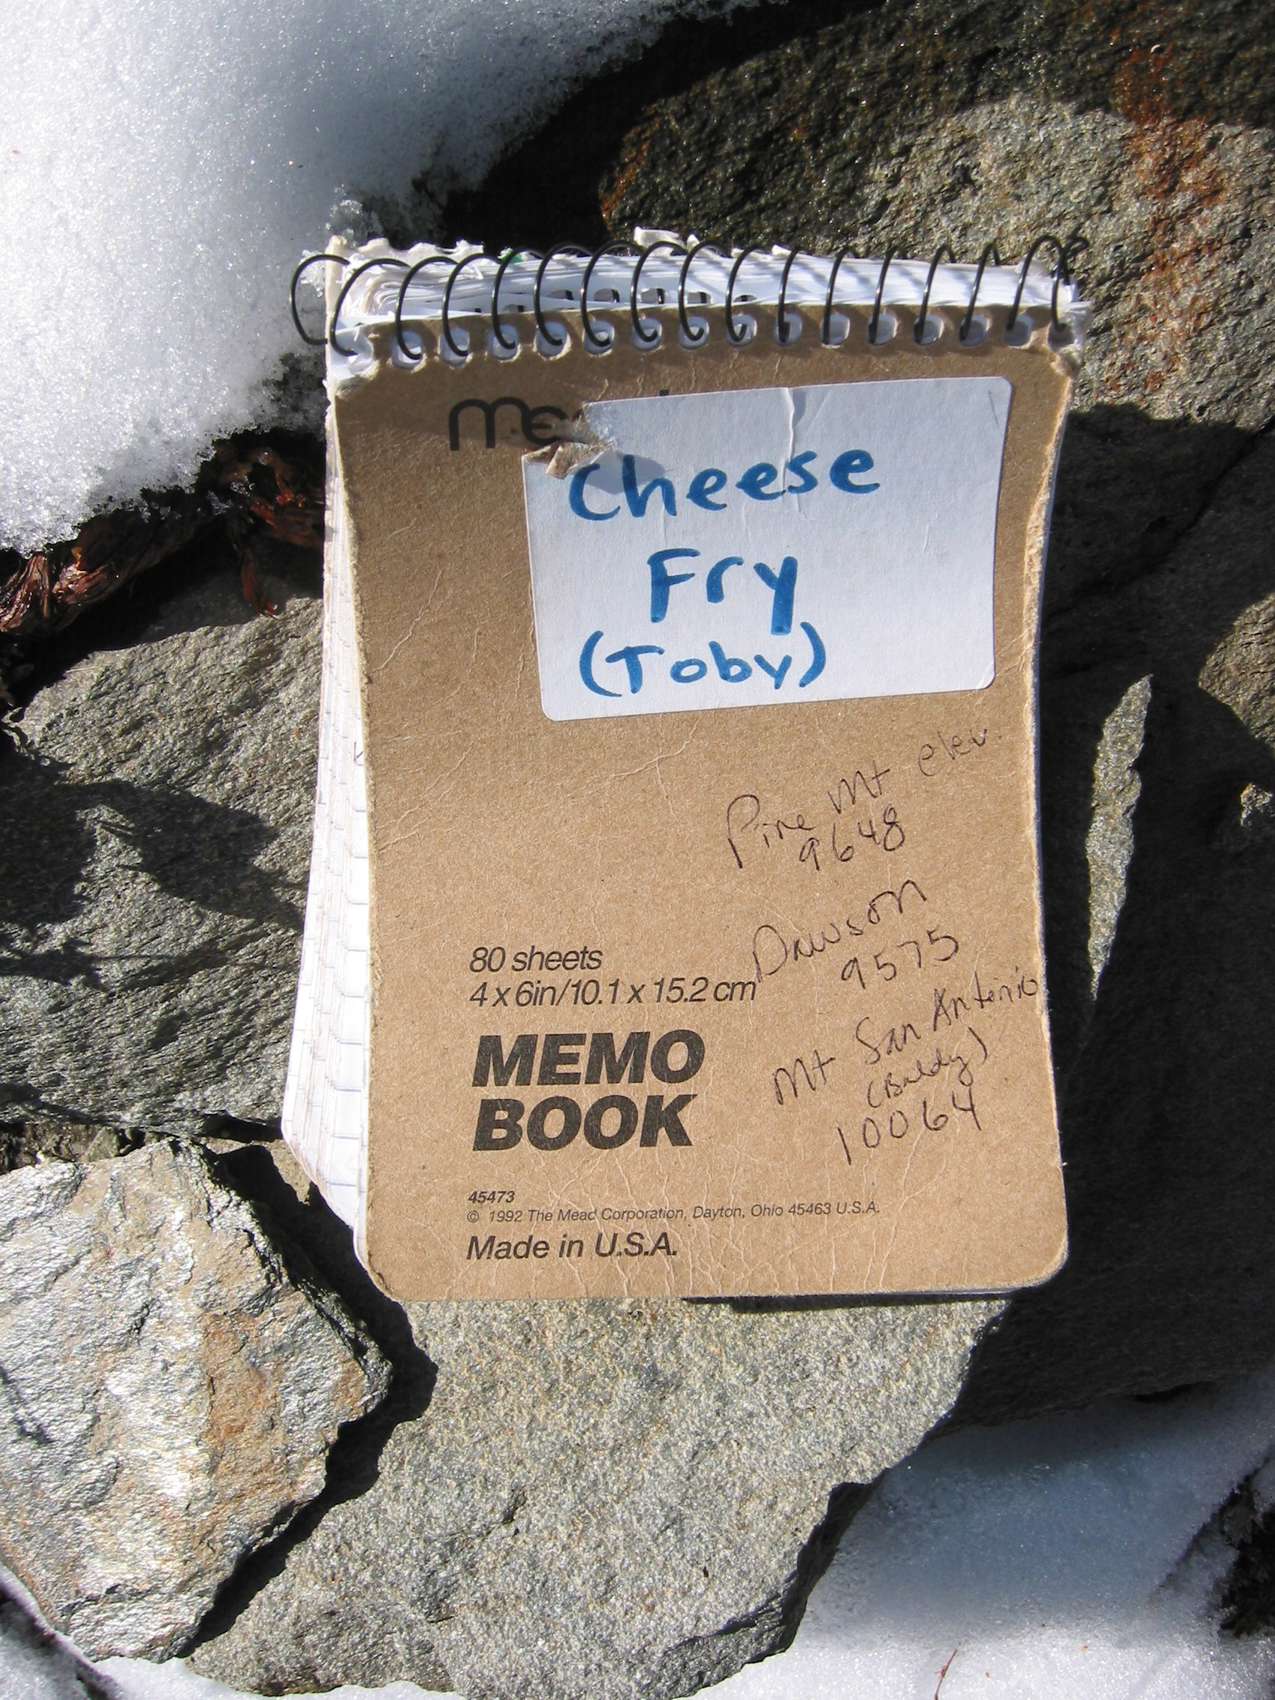 Me
Cheese
Fry
(Toby)
Pine Mt elev.
9648
Dawson
9575
Mt San Antonio
(Baldy)
10064
80 sheets
4 x 6in/10.1 x 15.2 cm
MEMO
BOOK
45473
© 1992 The Mead Corporation, Dayton, Ohio 45463 U.S.A.
Made in U.S.A.